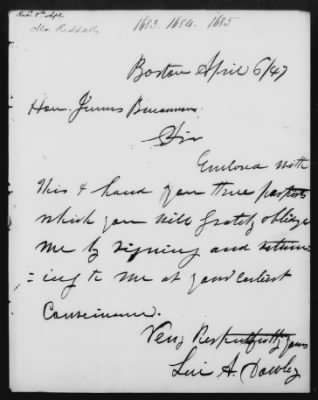 Recd 8th Apl
1683. 1684. 1685
Boston April 6/47
Hon James Buchanan
Sir
Enclosed with
this I hand you three pasports
which you will gratly oblidge
me by signing and return
=ing to me at your earliest
Convinance.
Very Respectfully yours
Levi A. Dowley